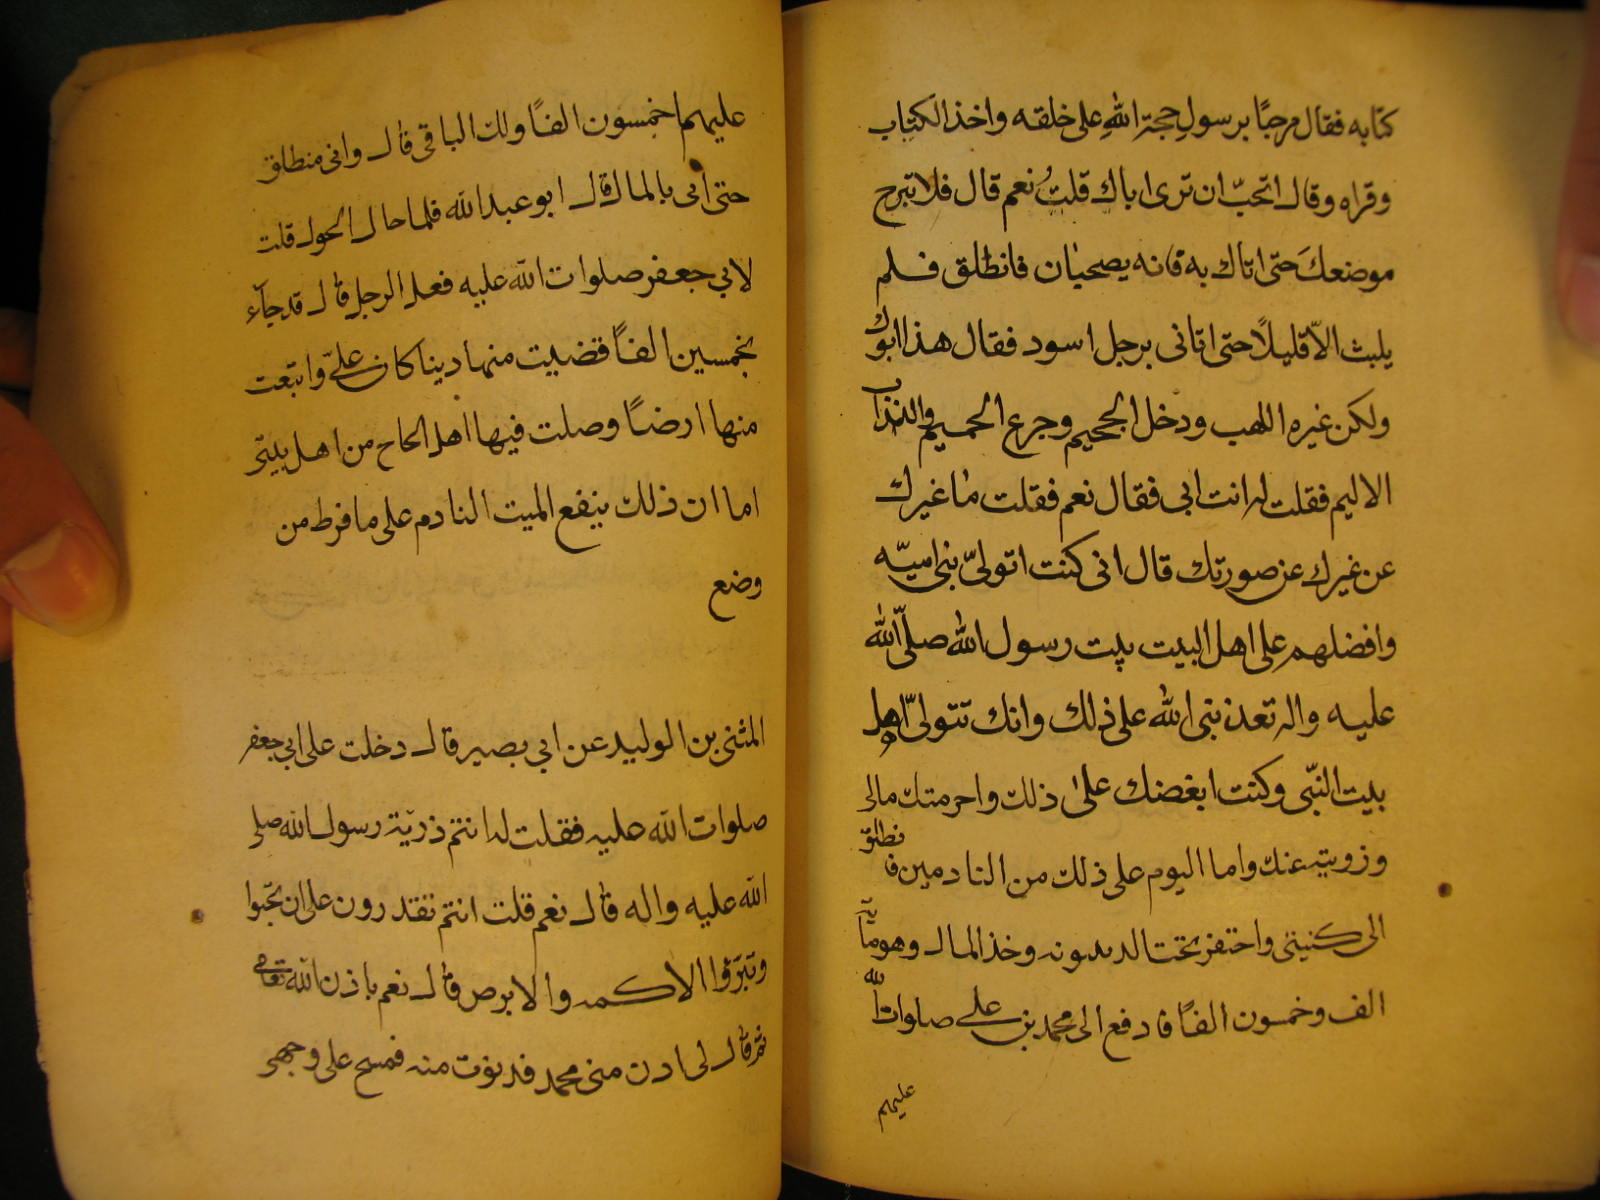 كتابه فقال مرحبًا برسول حجة الله على خلقه واخذ الكتاب
وقراه وقال اتحبّ ان ترى اباك قلت نعم قال فلا تبرح
موضعك حتى اتاك به فانه بصحبان فانطلق فلم
يلبث الّا قليلًا حتى اتانى برجل اسود فقال هذا ابوك
ولكن غيره اللهب ودخل الجحيم وجرع الحميم والعذاب
الاليم فقلت له انت ابى فقال نعم فقلت ما غيرك
عن غيرك عن صورتك قال انى كنت اتولىّ بنى اميّه
وافضلهم على اهل البيت بيت رسول الله صلّى الله
عليه واله تعذبنى الله على ذلك وانك تتولىّ اهل
بيت النبّى وكنت ابغضك على ذلك واحرمتك مالى
وزويته عنك واما اليوم على ذلك من النادمين فانطلق
الى كنيتى واحتفر تحت الديوونه وخذ المال وهو مائة
الف وخمسون الفًا فادفع الى محمد بن على صلوات الله
عليهم
عليهما خمسون الفًا ولك الباقى قال وانى منطلق
حتى اتى بالمال قال ابو عبد الله فلما حال الحول قلت
لابي جعفر صلوات الله عليه فعل الرجل قال قد جاء
بخمسين الفًا قضيت منها دينا كان علىّ وابتعت
منها ارضًا وصلت فيها اهل الحاج من اهل بيتى
اما ان ذلك ينفع الميت النادم على ما فرط من
وضع
المثنى بن الوليد عن ابي بصير قال دخلت على ابي جعفر
صلوات الله عليه فقلت له انتم ذريّة رسول الله صلى
الله عليه واله قال نعم قلت انتم تقتدرون على ان تحبوا
وتبرّؤا الاكمه والابرص قال نعم باذن الله تعالى
ثم قال لى ادن منى محمد فدنوت منه فمسح على وجهى